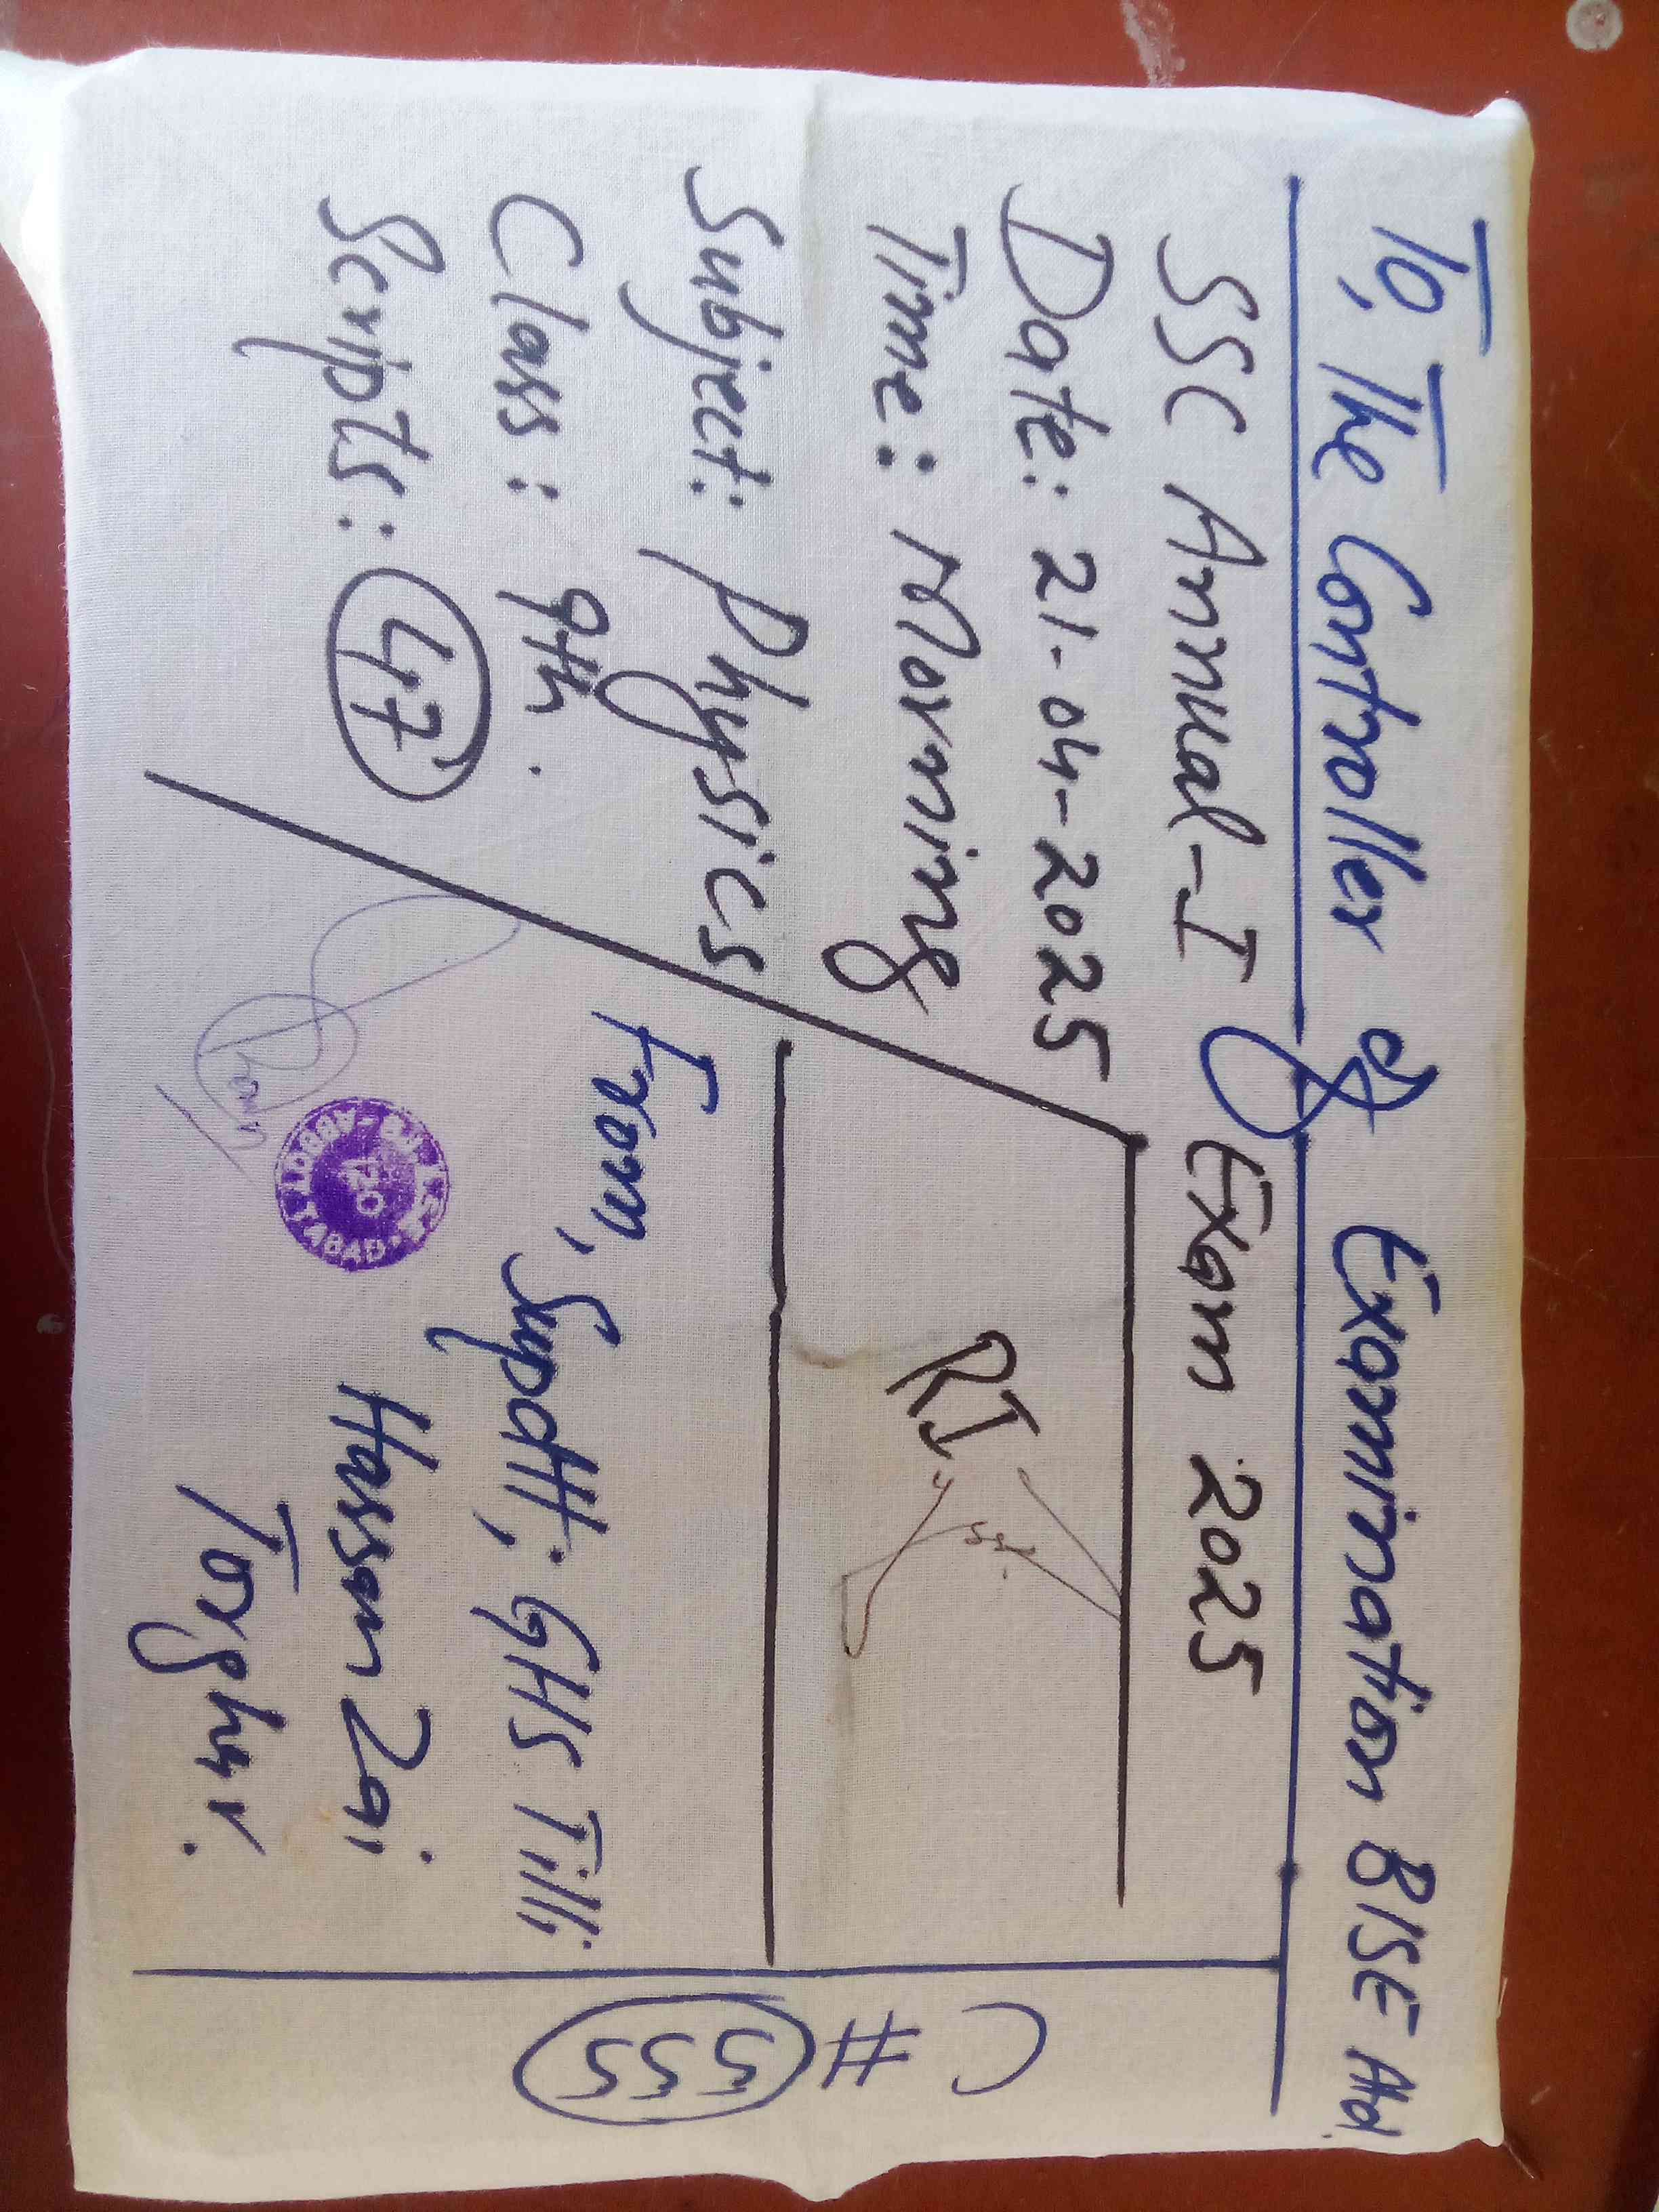 To, The Controller of Examination BISE Atd.
SSC Annual-I Exam 2025
Date: 21-04-2025
Time: Morning
RI
Subject: Physics
Class: 9th.
Scripts: 47
From, Supdtt; GHS Tilli
Hassan Zai
Torghar.
C # 555